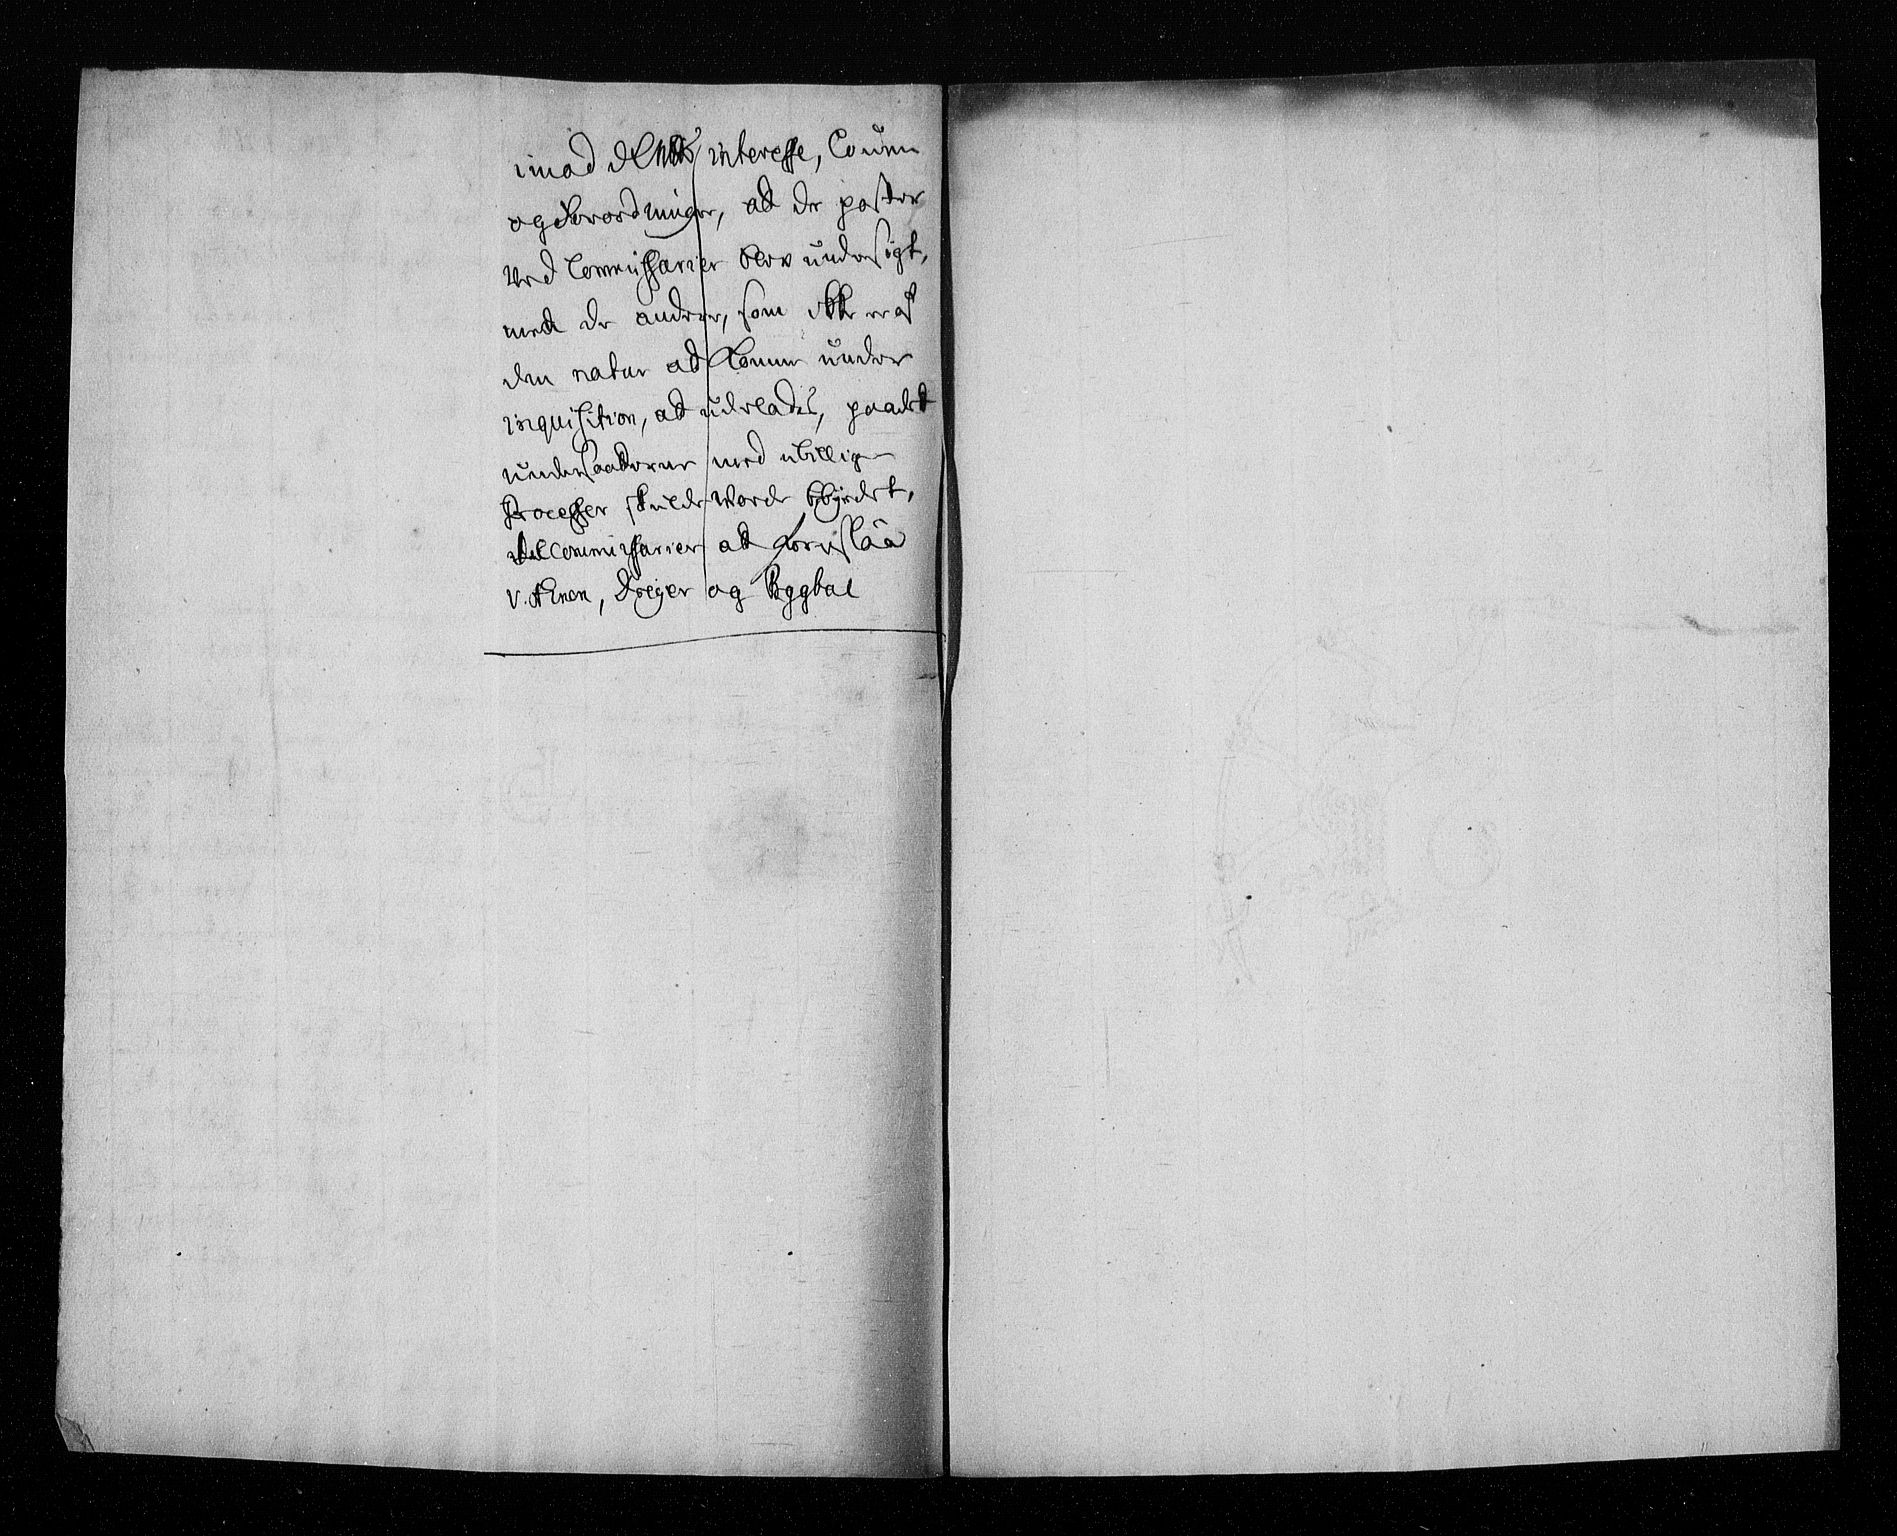 imod d. Mtts interesse, Loven
og Forordninger, at de poster
ved Commissarier blev undersøgt,
med de andre, som ikke er af
den natur at komme under
inquisition, at udelades, paa det
undersaatterne med ubillige
Processer skulde vorde bebyrdet,
til Commissarier at foreslaa
v. Ahnen, Dreyer og Byggbal